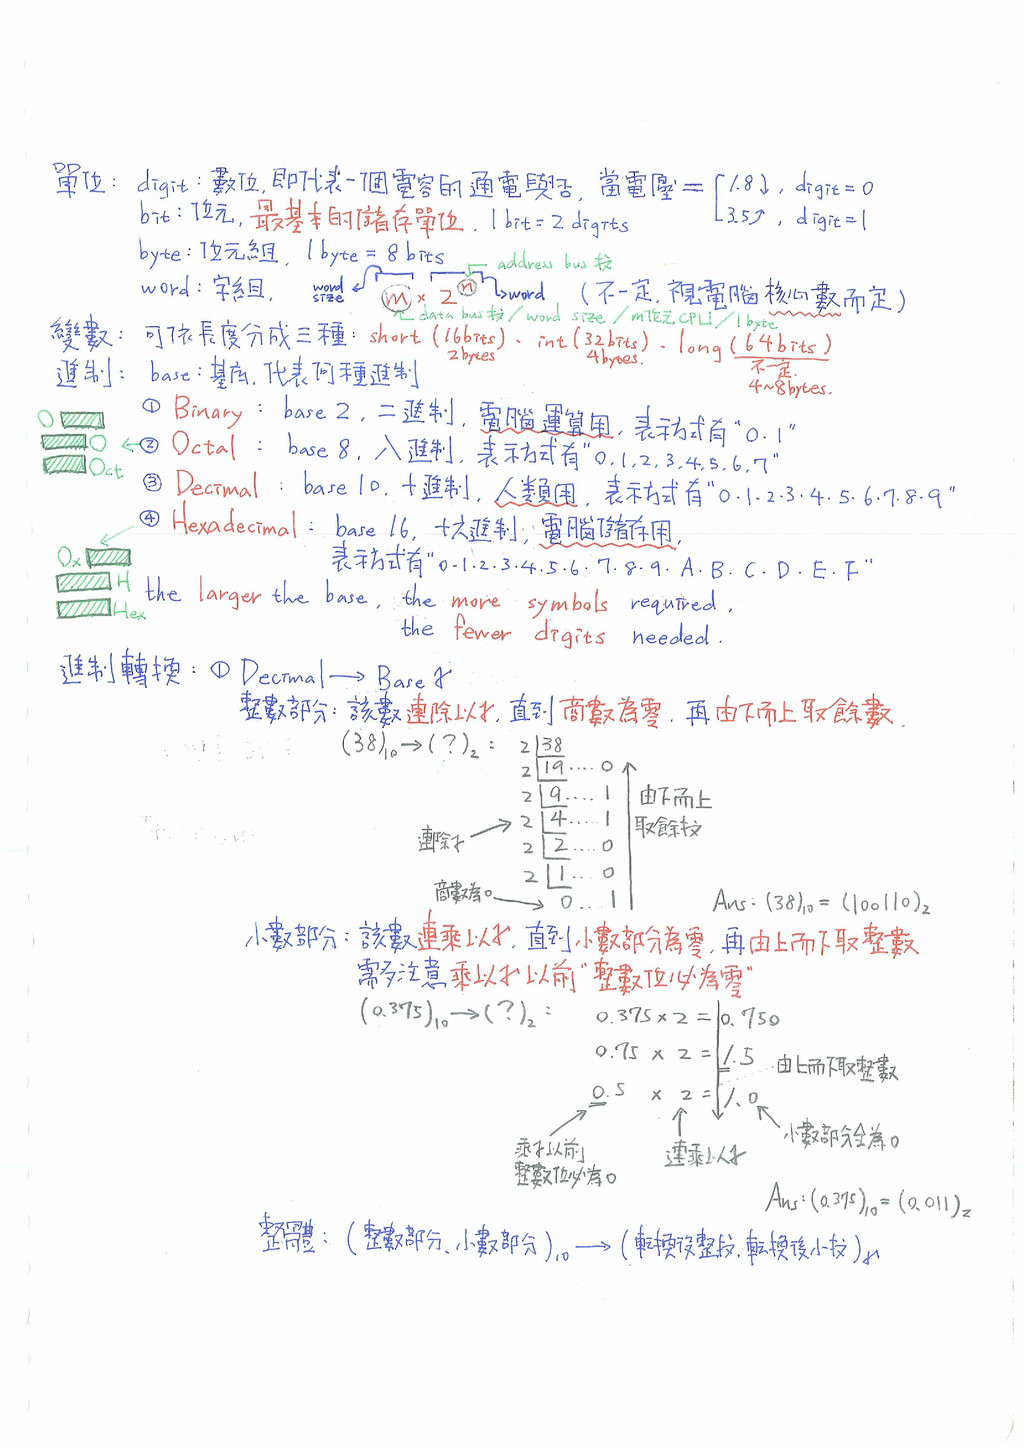 單位: digit: 數位, 即代表一個電容的通電與否, 當電壓 = 1.8↓, digit = 0
3.5↗, digit = 1
bit: 位元, 最基本的儲存單位, 1 bit = 2 digits
byte: 位元組, 1 byte = 8 bits
address bus 數
word: 字組, word size m × 2^n word (不一定, 視電腦核心數而定)
data bus 數 / word size / m位元CPU / 1 byte
變數: 可依長度分成三種: short (16bits)、int (32bits)、long (64bits)
2bytes 4bytes. 不一定. 4~8bytes.
進制: base: 基底, 代表何種進制
① Binary: base 2, 二進制, 電腦運算用, 表示方式有"0.1"
O
② Octal: base 8, 八進制, 表示方式有"0,1,2,3,4,5,6,7"
O
Oct
③ Decimal: base 10, 十進制, 人類用, 表示方式有"0.1.2.3.4.5.6.7.8.9"
④ Hexadecimal: base 16, 十六進制, 電腦儲存用,
表示方式有"0.1.2.3.4.5.6.7.8.9.A.B.C.D.E.F"
0x
H
Hex
the larger the base, the more symbols required,
the fewer digits needed.
進制轉換: ① Decimal → Base r
整數部分: 該數連除以r, 直到商數為零, 再由下而上取餘數.
(38)₁₀ → (?)₂: 2 38
2 19 .... 0
2 9 .... 1
由下而上
2 4 .... 1
取餘數
連除r
2 2 .... 0
2 1 ... 0
商數為0
0 ... 1
Ans: (38)₁₀ = (100110)₂
小數部分: 該數連乘以r, 直到小數部分為零, 再由上而下取整數
需多注意乘以r以前"整數位必為零"
(0.375)₁₀ → (?)₂: 0.375 × 2 = 0.750
0.75 × 2 = 1.5
由上而下取整數
0.5 × 2 = 1.0
小數部分全為0
乘r以前
整數位必為0
連乘以r
Ans: (0.375)₁₀ = (0.011)₂
整體: (整數部分、小數部分)₁₀ → (轉換後整數、轉換後小數)r